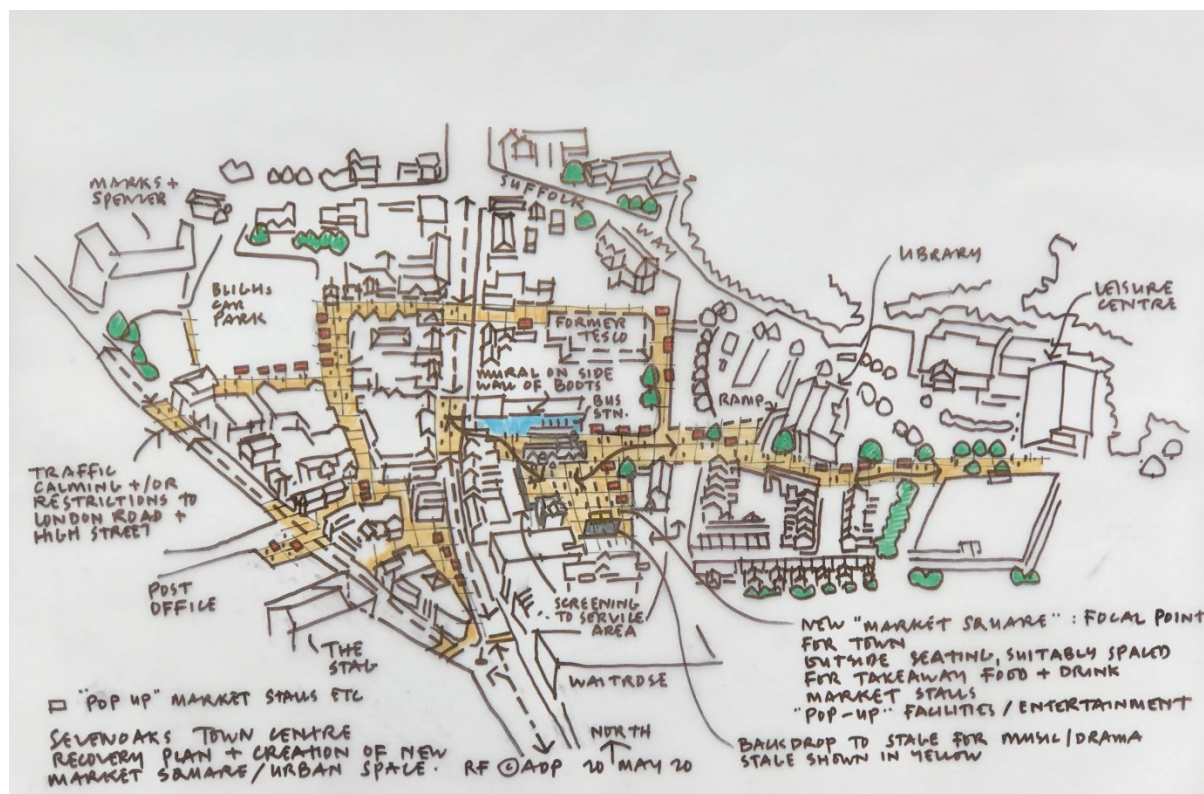 MARKS +
SPENCER
SUFFOLK
WAY
LIBRARY
LEISURE
CENTRE
BLIGHS
CAR
PARK
FORMER
TESCO
MURAL ON SIDE
WALL OF BOOTS
BUS
STN.
RAMP
TRAFFIC
CALMING +/OR
RESTRICTIONS TO
LONDON ROAD +
HIGH STREET
POST
OFFICE
THE
STAG
SCREENING
TO SERVICE
AREA
WAITROSE
NEW "MARKET SQUARE" : FOCAL POINT
FOR TOWN
OUTSIDE SEATING, SUITABLY SPACED
FOR TAKEAWAY FOOD + DRINK
MARKET STALLS
"POP-UP" FACILITIES / ENTERTAINMENT
BACKDROP TO STAGE FOR MUSIC/DRAMA
STAGE SHOWN IN YELLOW
"POP UP" MARKET STALLS ETC
SEVENOAKS TOWN CENTRE
RECOVERY PLAN + CREATION OF NEW
MARKET SQUARE/URBAN SPACE.
RF © ADP 20 MAY 20
NORTH